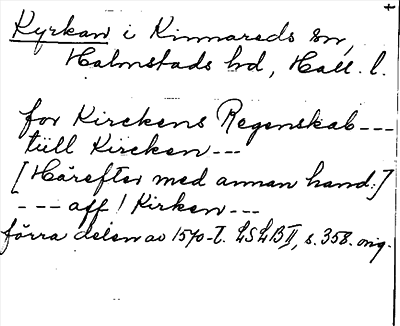 Kyrkan i Kinnareds sn,
Halmstads hd, Hall. l.
for Kirckens Regenskab ---
tiill Kircken ---
[Härefter med annan hand:]
--- aff / Kirken ---
förra delen av 1570-t. LSLB II, s. 358. orig.